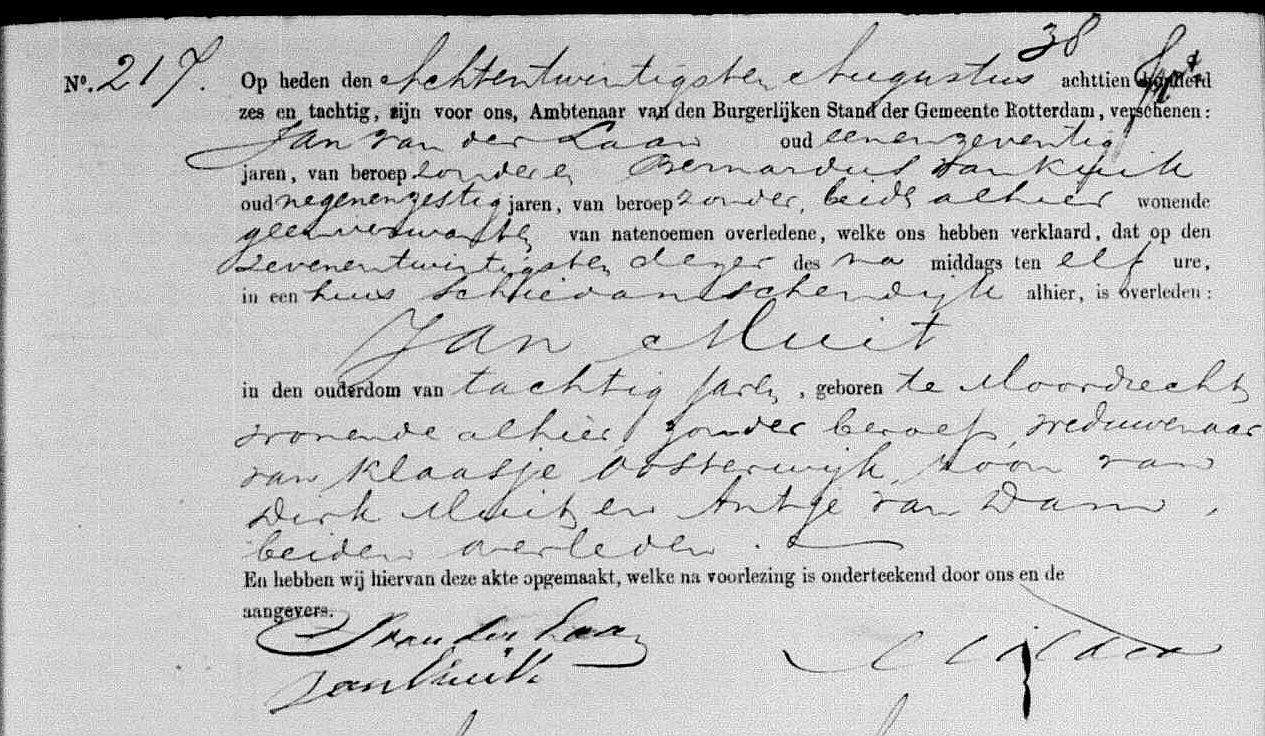 38
Nº. 217. Op heden den Achtentwintigsten Augustus achttien honderd
zes en tachtig, zijn voor ons, Ambtenaar van den Burgerlijken Stand der Gemeente Rotterdam, verschenen:
Jan van der Laan oud eenenzeventig
jaren, van beroep zonder en Bernardus van Kuik
oud negenenzestig jaren, van beroep zonder, beide alhier wonende
geen verwanten van natenoemen overledene, welke ons hebben verklaard, dat op den
zevenentwintigsten dezer des na middags ten elf ure,
in een huis Schiedamschendijk alhier, is overleden:
Jan Muit
in den ouderdom van tachtig jaren, geboren te Moordrecht,
wonende alhier, zonder beroep, weduwenaar
van Klaasje Oosterwijk, zoon van
Dirk Muit en Antje van Dam,
beiden overleden.
En hebben wij hiervan deze akte opgemaakt, welke na voorlezing is onderteekend door ons en de
aangevers.
J van der Laan